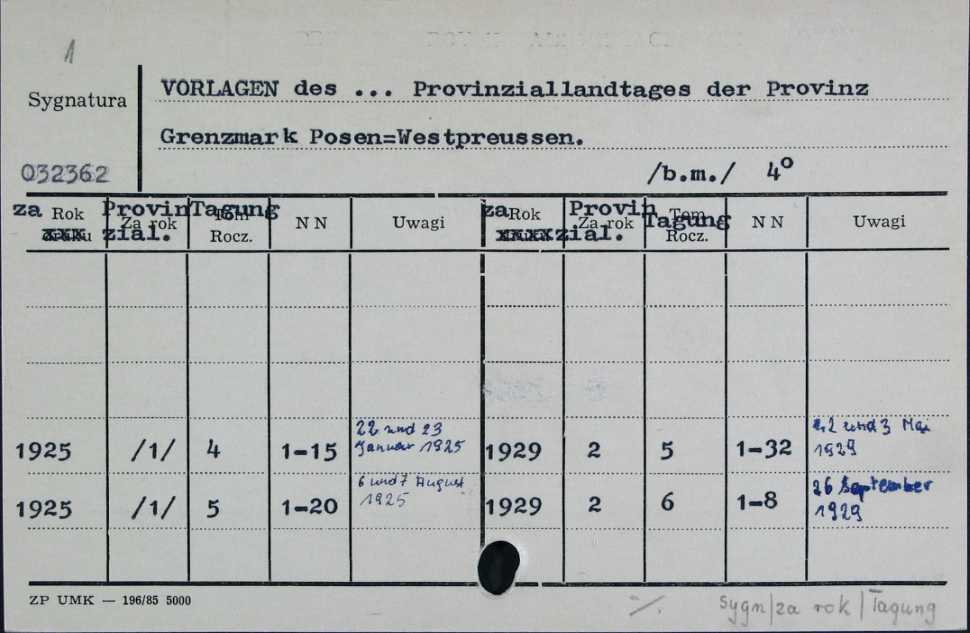 1
Sygnatura
VORLAGEN des ... Provinziallandtages der Provinz
Grenzmark Posen=Westpreussen.
032362
/b.m./ 4º
za Rok Provin Za rok Tagung Tom N N Uwagi za Rok Provin Za rok Tagung Tom N N Uwagi
xxx zial. Rocz. xxxx zial. Rocz.
1925 /1/ 4 1-15 22 und 23 Januar 1925 1929 2 5 1-32 2 und 3 Mai 1929
1925 /1/ 5 1-20 6 und 7 August 1925 1929 2 6 1-8 26 September 1929
ZP UMK — 196/85 5000
%. Sygn/za rok/Tagung